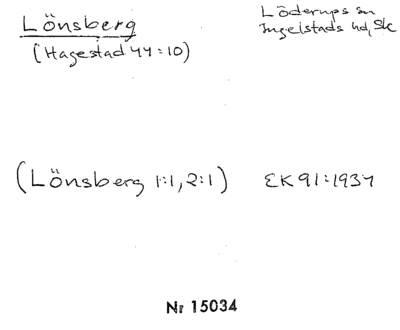 Lönsberg
(Hagestad 44:10)
Löderups sn
Ingelstads hd, Sk
(Lönsberg 1:1, 2:1) EK 91:1937
Nr 15034